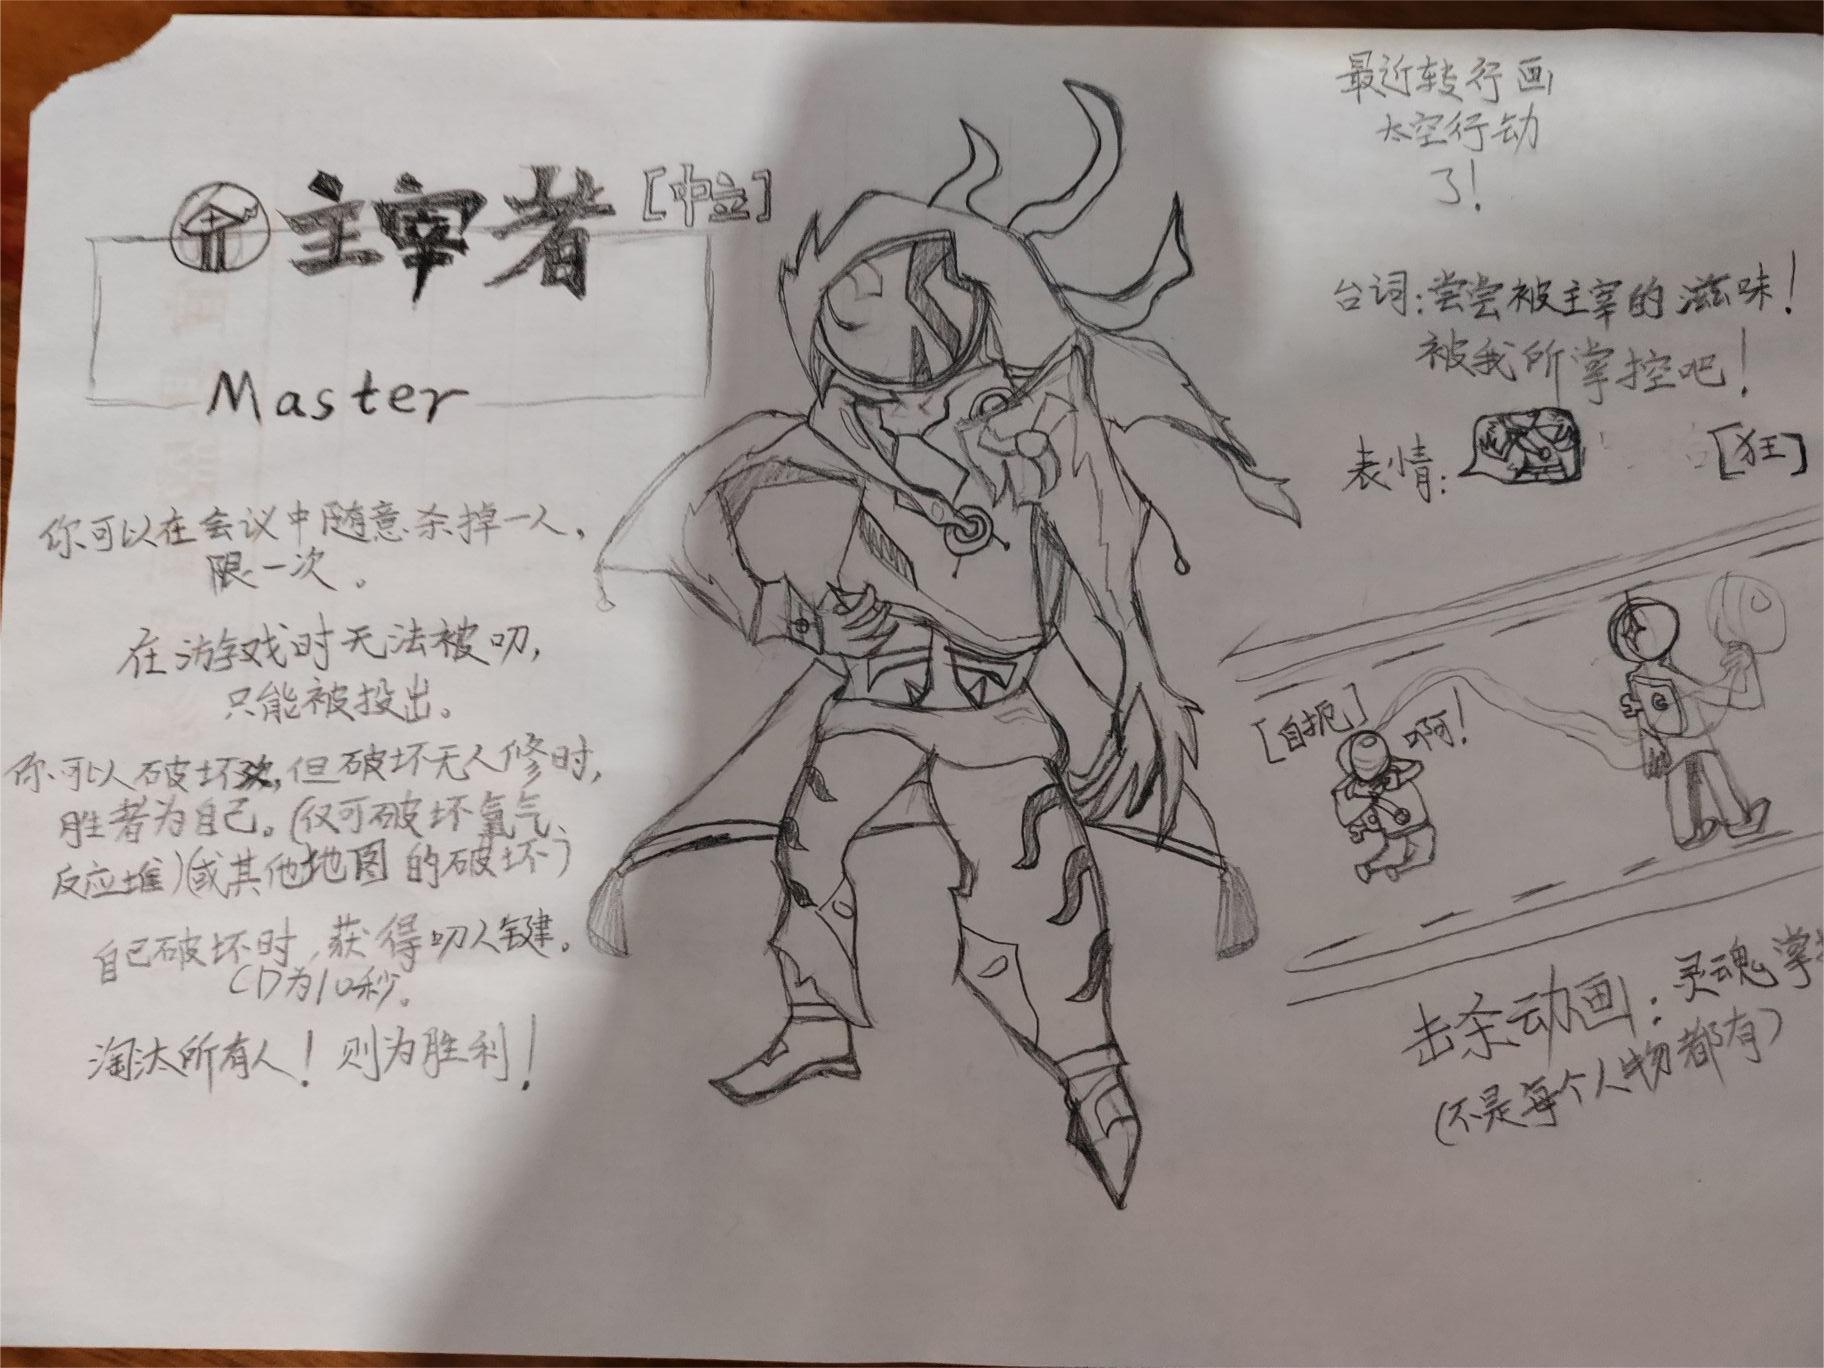 主宰者 [中立]
Master
你可以在会议中随意杀掉一人,
限一次。
在游戏时无法被叨,
只能被投出。
你可以破坏,但破坏无人修时,
胜者为自己。(仅可破坏氧气、
反应堆)(或其他地图的破坏)
自己破坏时,获得叨人键。
CD为10秒。
淘汰所有人!则为胜利!
最近转行画
太空行动
了!
台词:尝尝被主宰的滋味!
被我所掌控吧!
表情:
[狂]
[自扼]
啊!
击杀动画:灵魂掌
(不是每个人物都有)